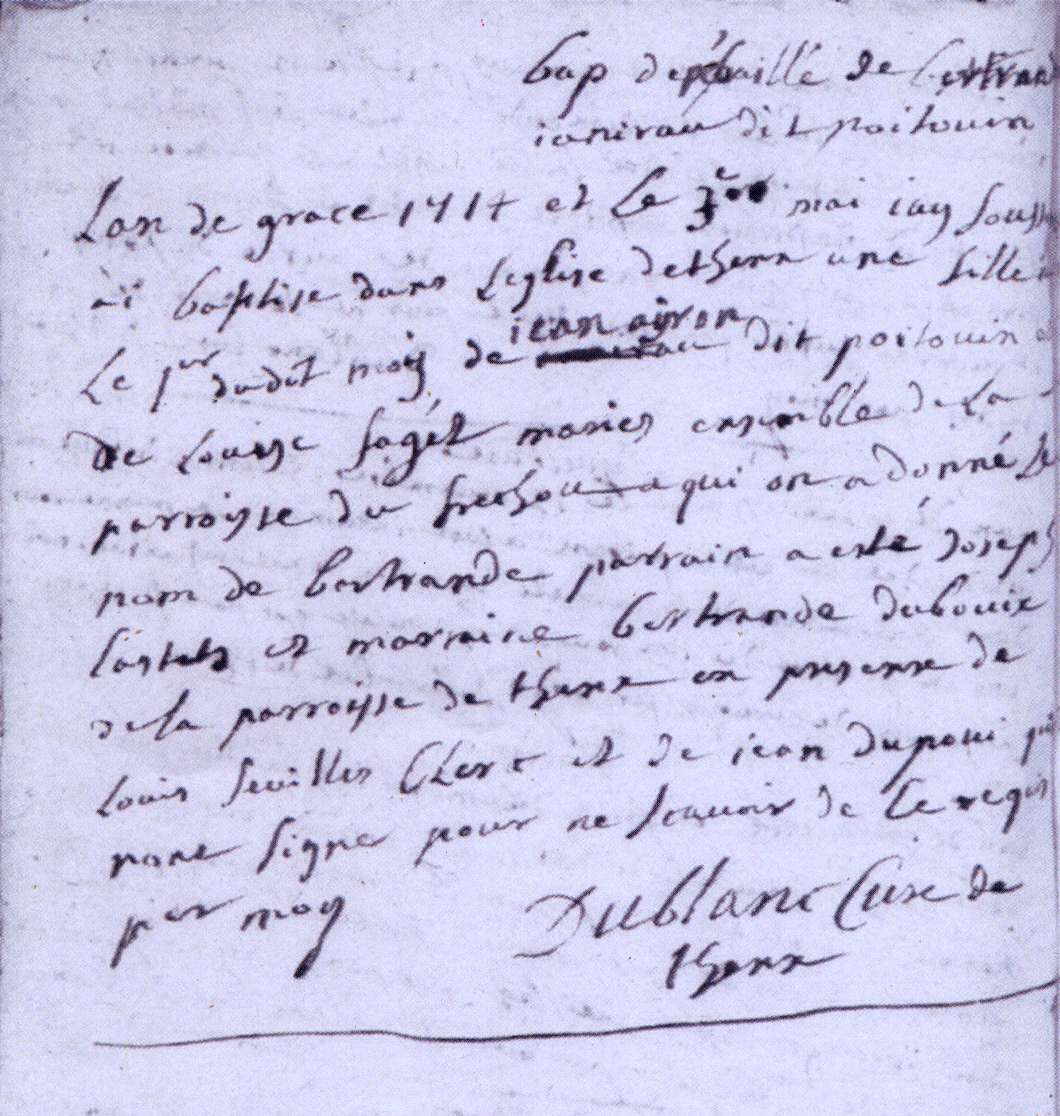 bap de fillé de bertran
ianirau dit poitouin
Lan de grace 1714 et Le 3e mai iay souss
ai baptise dans Leglise de thene une fille
Le 1er dudit moy de iean ayron dit poitouin
de Louise saget maries ensemble de La
parroisse du frechou a qui on a donné Le
nom de bertrande parrain a esté Joseph
Lastets et marraine bertrande dubouix
de la parroisse de thene en presence de
Louis seuilles Clerc et de iean dupoui
nont signer pour ne scauoir de Ce requis
par moy
Dublanc Cure de
thene